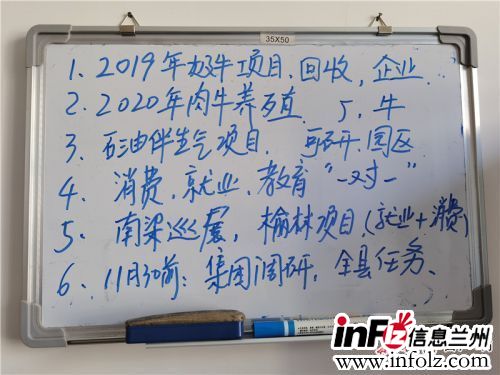 35X50
1、2019年牧牛项目、回收,企业
2、2020年肉牛养殖 5,牛
3、石油伴生气项目、可研、园区
4、消费、就业、教育“一对一”
5、南梁巡展,榆林项目(就业+消费)
6、11月30前:集团调研,全县任务、
infLZ信息兰州
www.infolz.com